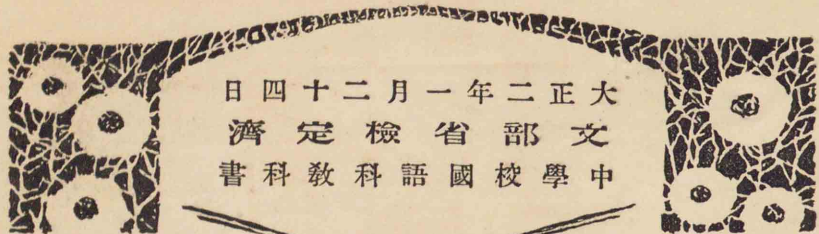 大正二年一月二十四日
文部省檢定濟
中學校國語科教科書